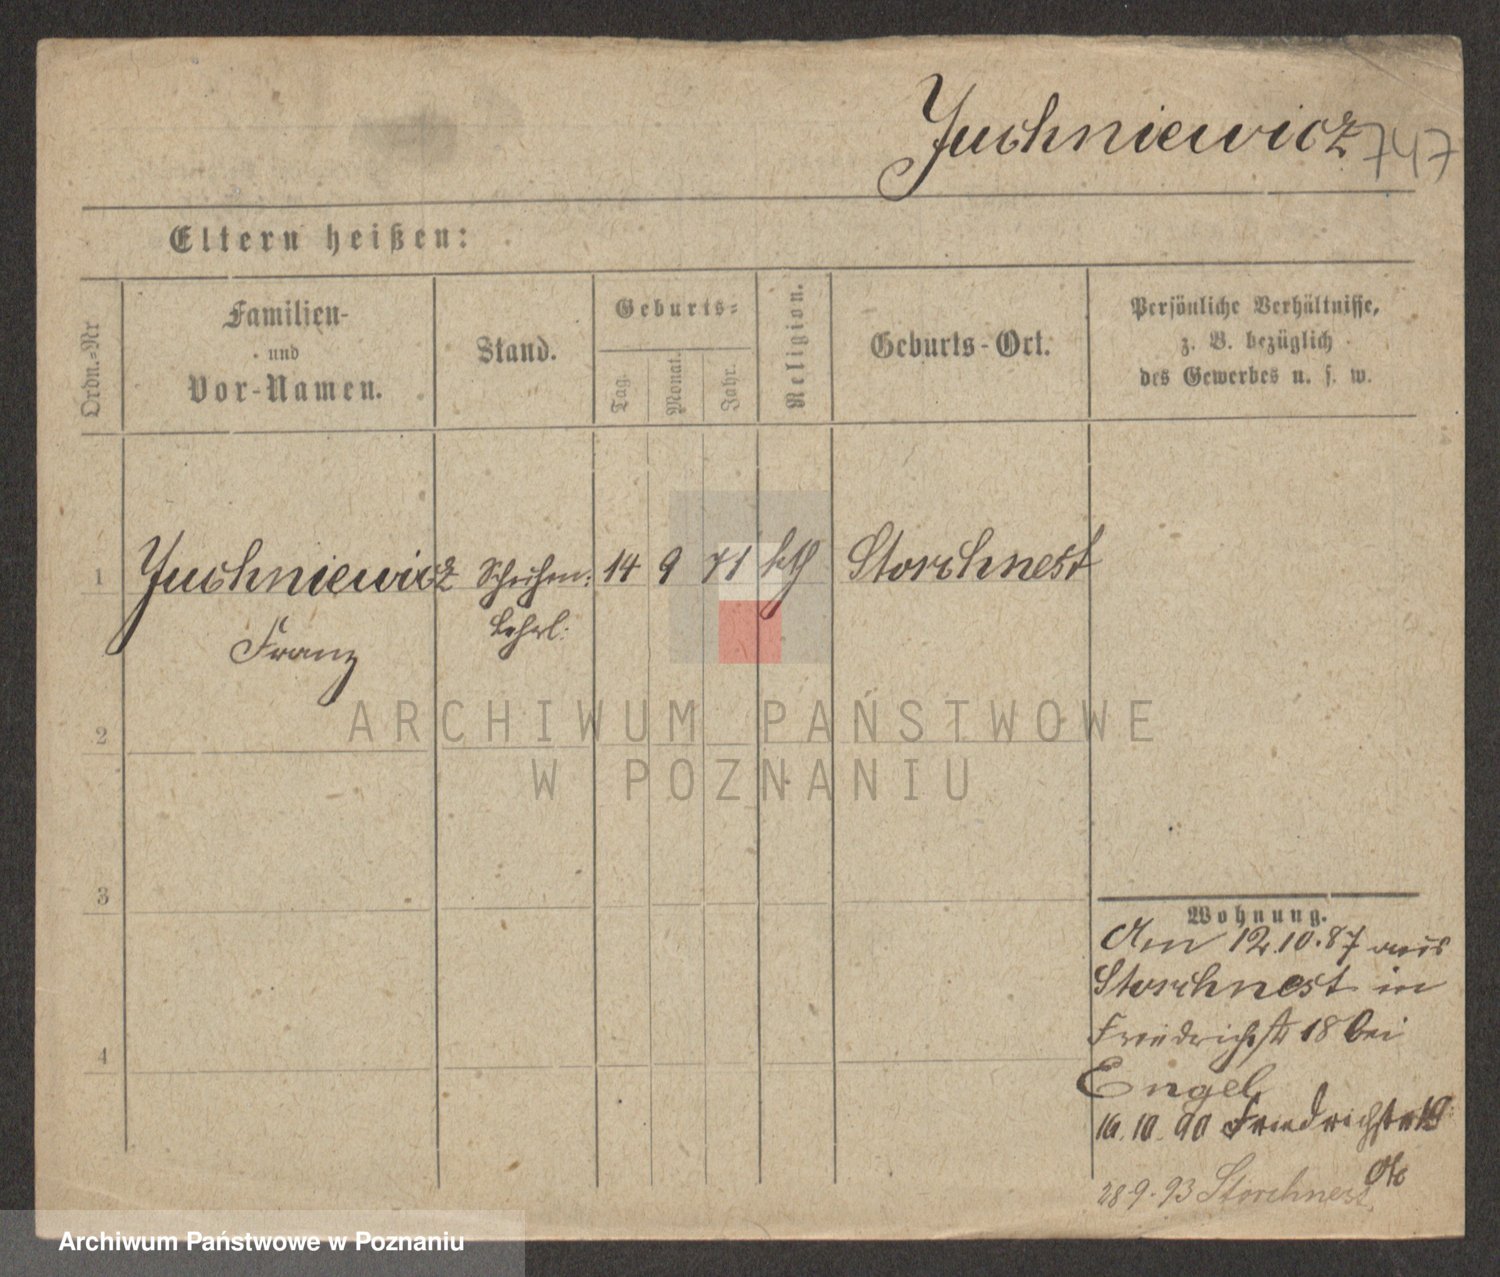 Juchniewicz 747
Eltern heißen:
Ordn.-Nr
Familien-
und
Vor-Namen.
Stand.
Geburts-
Tag.
Monat.
Jahr.
Religion.
Geburts-Ort.
Persönliche Verhältnisse,
z. B. bezüglich
des Gewerbes u. s. w.
1 Juchniewicz 14 9 71 kth Storchnest
Franz Lehrl:
ARCHIWUM PAŃSTWOWE
2
W POZNANIU
3
Wohnung.
Am 12.10.87 aus
Storchnest in
Friedrichstr 18 bei
4
Engel
16.10.90 Friedrichstr
28.9.93 Storchnest
Archiwum Państwowe w Poznaniu